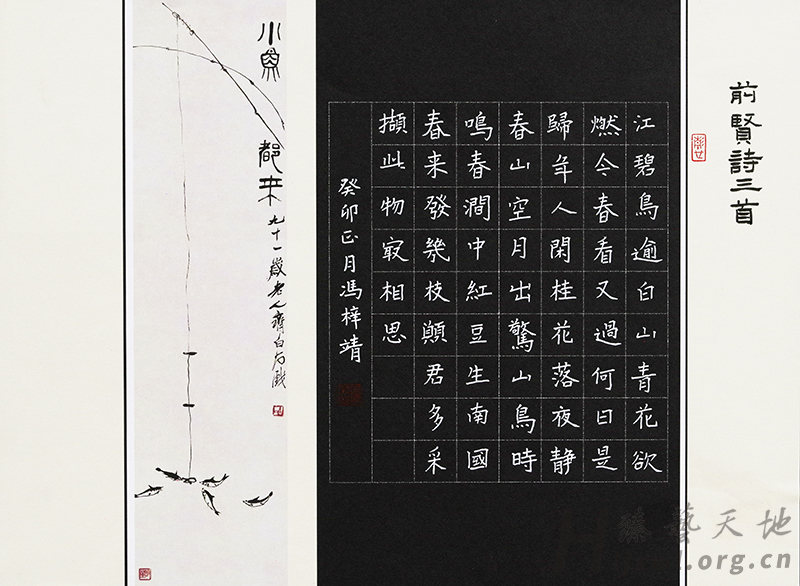 前賢詩三首
江碧鳥逾白山青花欲
燃今春看又過何日是
歸年人閑桂花落夜静
春山空月出驚山鳥時
鳴春澗中紅豆生南國
春来發幾枝願君多采
擷此物㝡相思
癸卯正月馮梓靖
小魚都来
九十一歲老人齊白石戲
藝天地
.org.cn